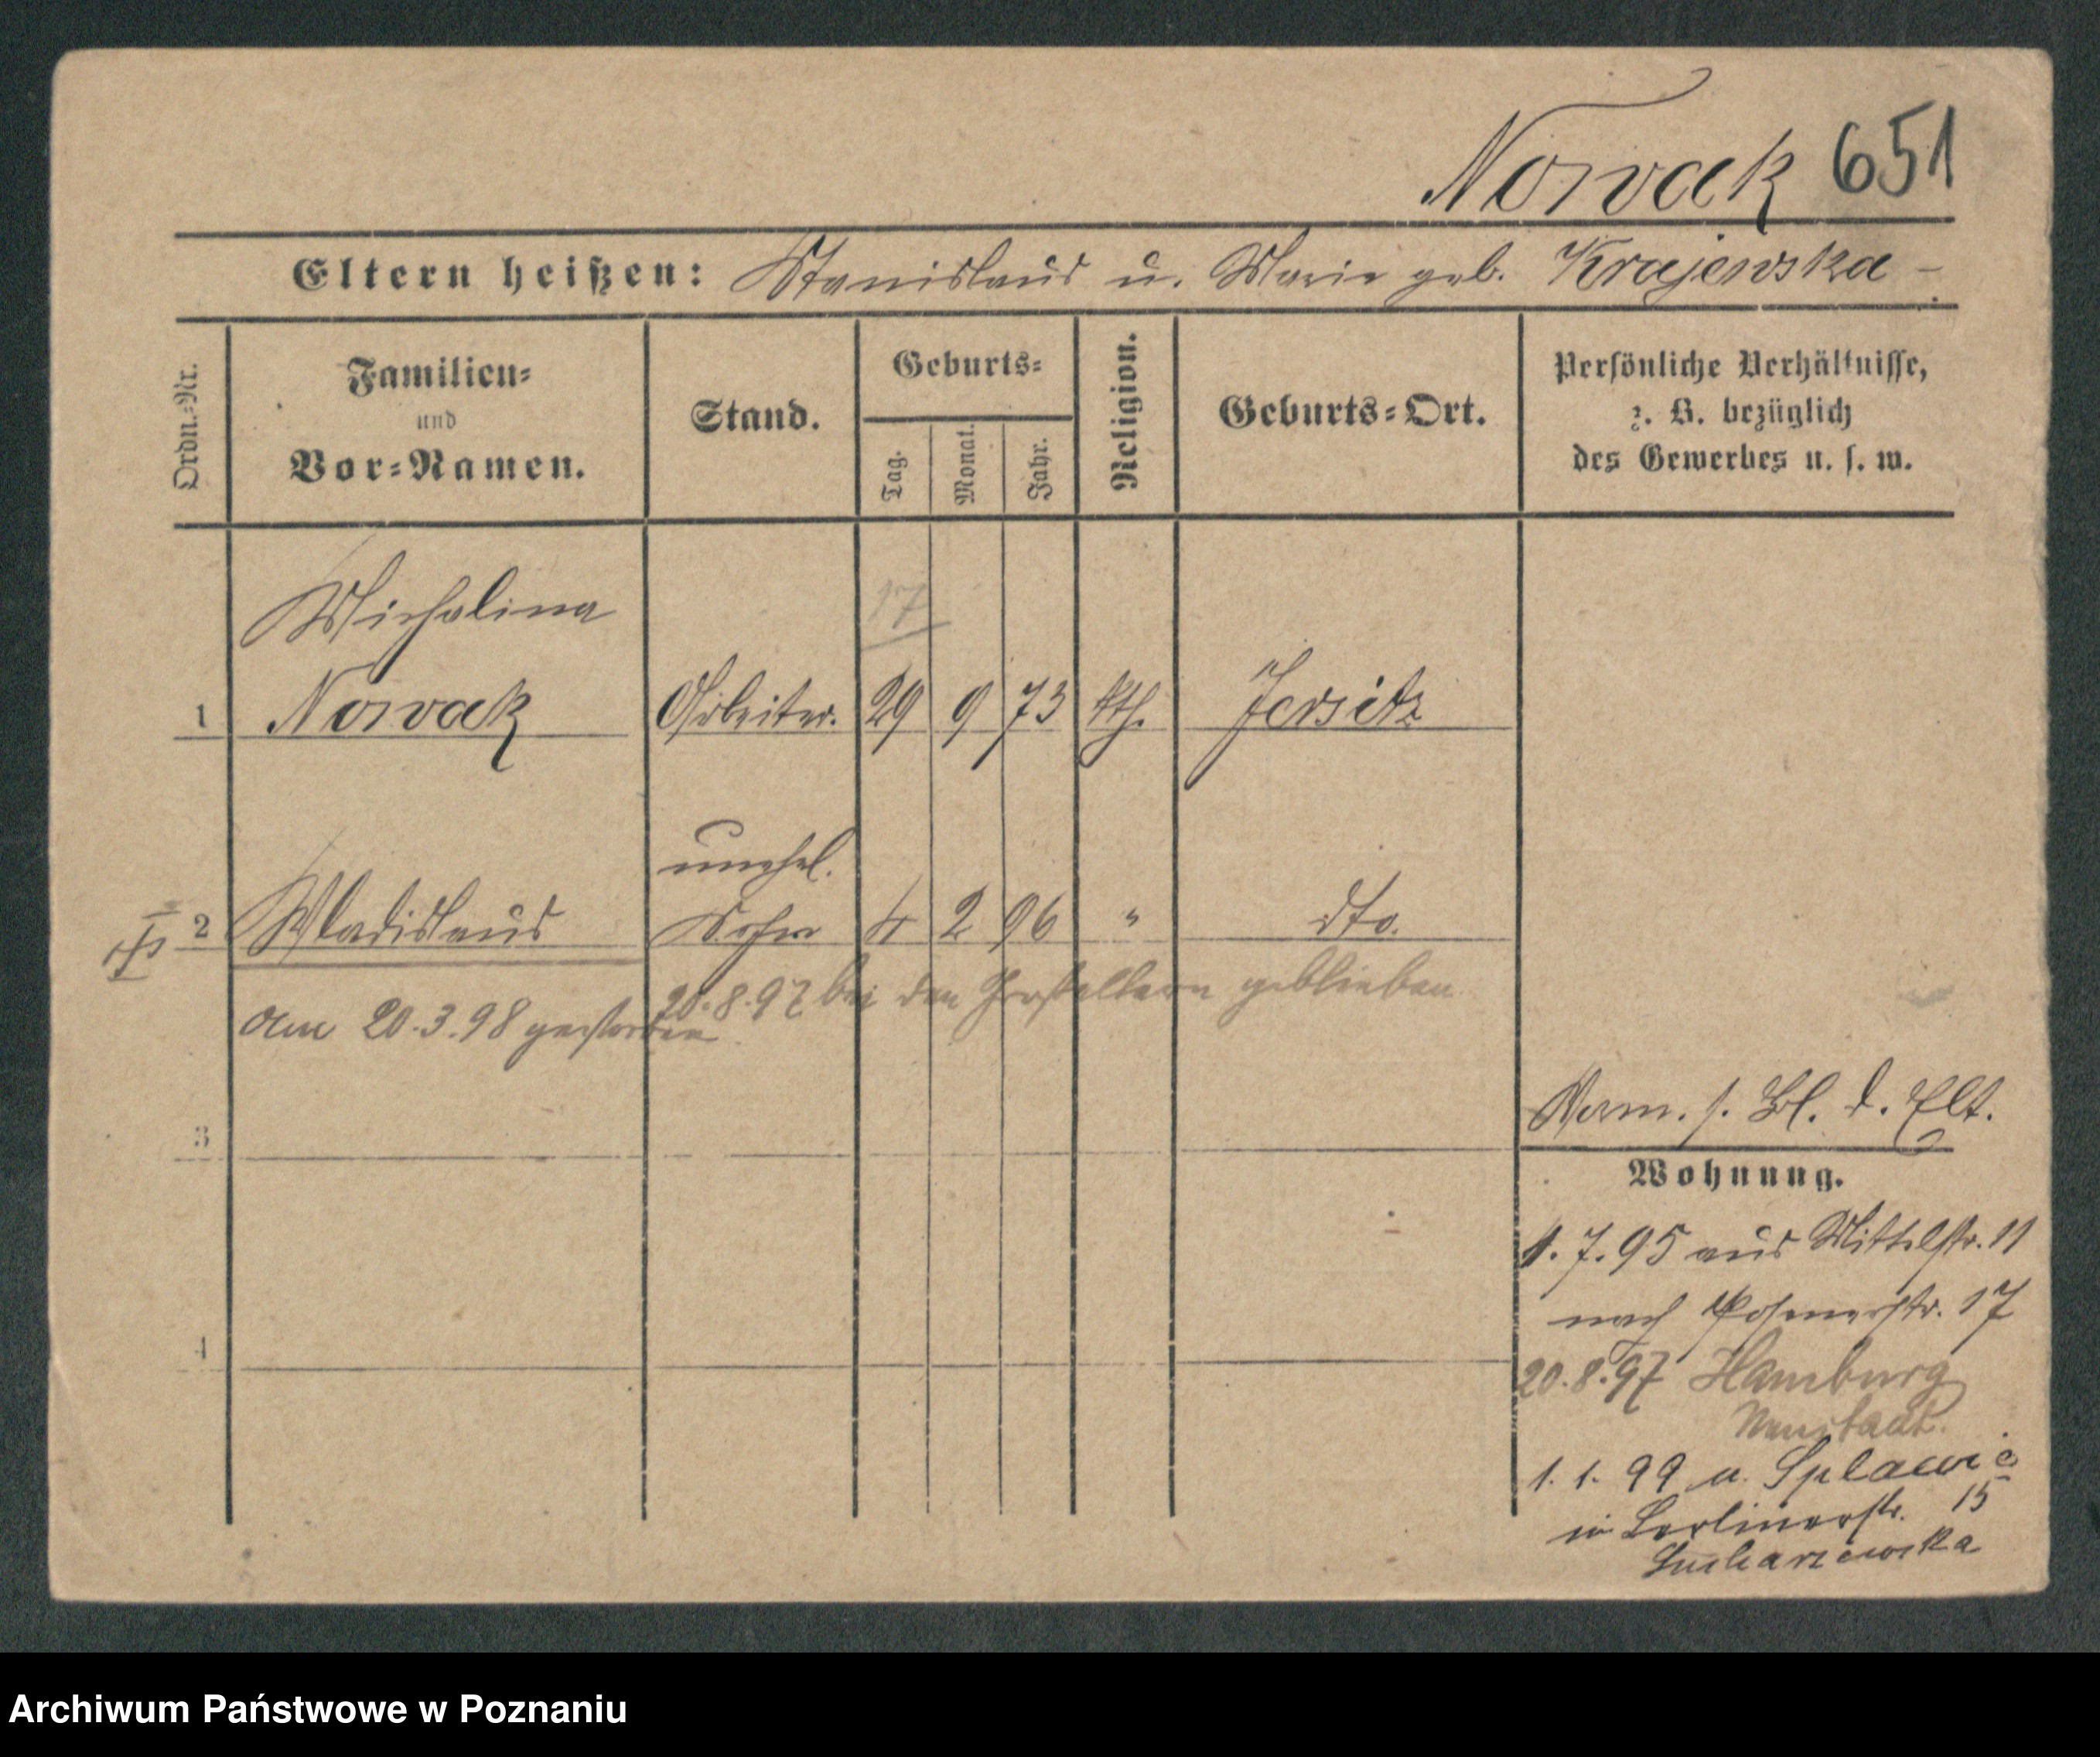 Nowak 651
Eltern heißen: Stanislaus u. Marie geb. Krajewska -
Ordn.=Nr.
Familien=
und
Vor=Namen.
Stand.
Geburts=
Tag.
Monat.
Jahr.
Religion.
Geburts=Ort.
Persönliche Verhältnisse,
z. B. bezüglich
des Gewerbes u. s. w.
Michalina
17
1 Nowak Arbeiter. 29 9 73 kth. Jersitz
unehel.
2 Wladislaus Sohn 4 2 96 " dto.
20.8.97 bei den Großeltern geblieben
am 20.3.98 gestorben
3
Verm. s. Bl. d. Elt.
Wohnung.
1.7.95 aus Mittelstr. 11
nach Posenerstr. 17
4
20.8.97 Hamburg
Neustadt.
1.1.99 a. Splawie
in Berlinerstr. 15
Sucharzewska
Archiwum Państwowe w Poznaniu